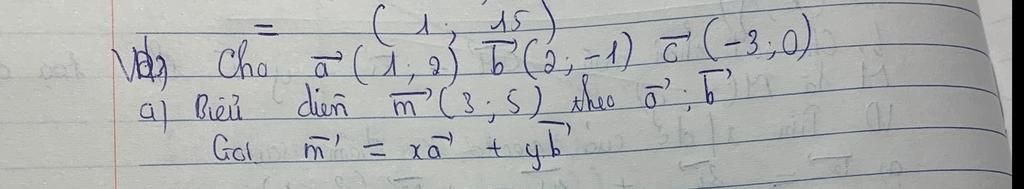 = (1; 15)
Vd2 Cho a⃗ (1; 2) b⃗ (2; -1) c⃗ (-3; 0)
a) Biểu diễn m⃗ (3; 5) theo a⃗; b⃗
Gọi m⃗ = xa⃗ + yb⃗